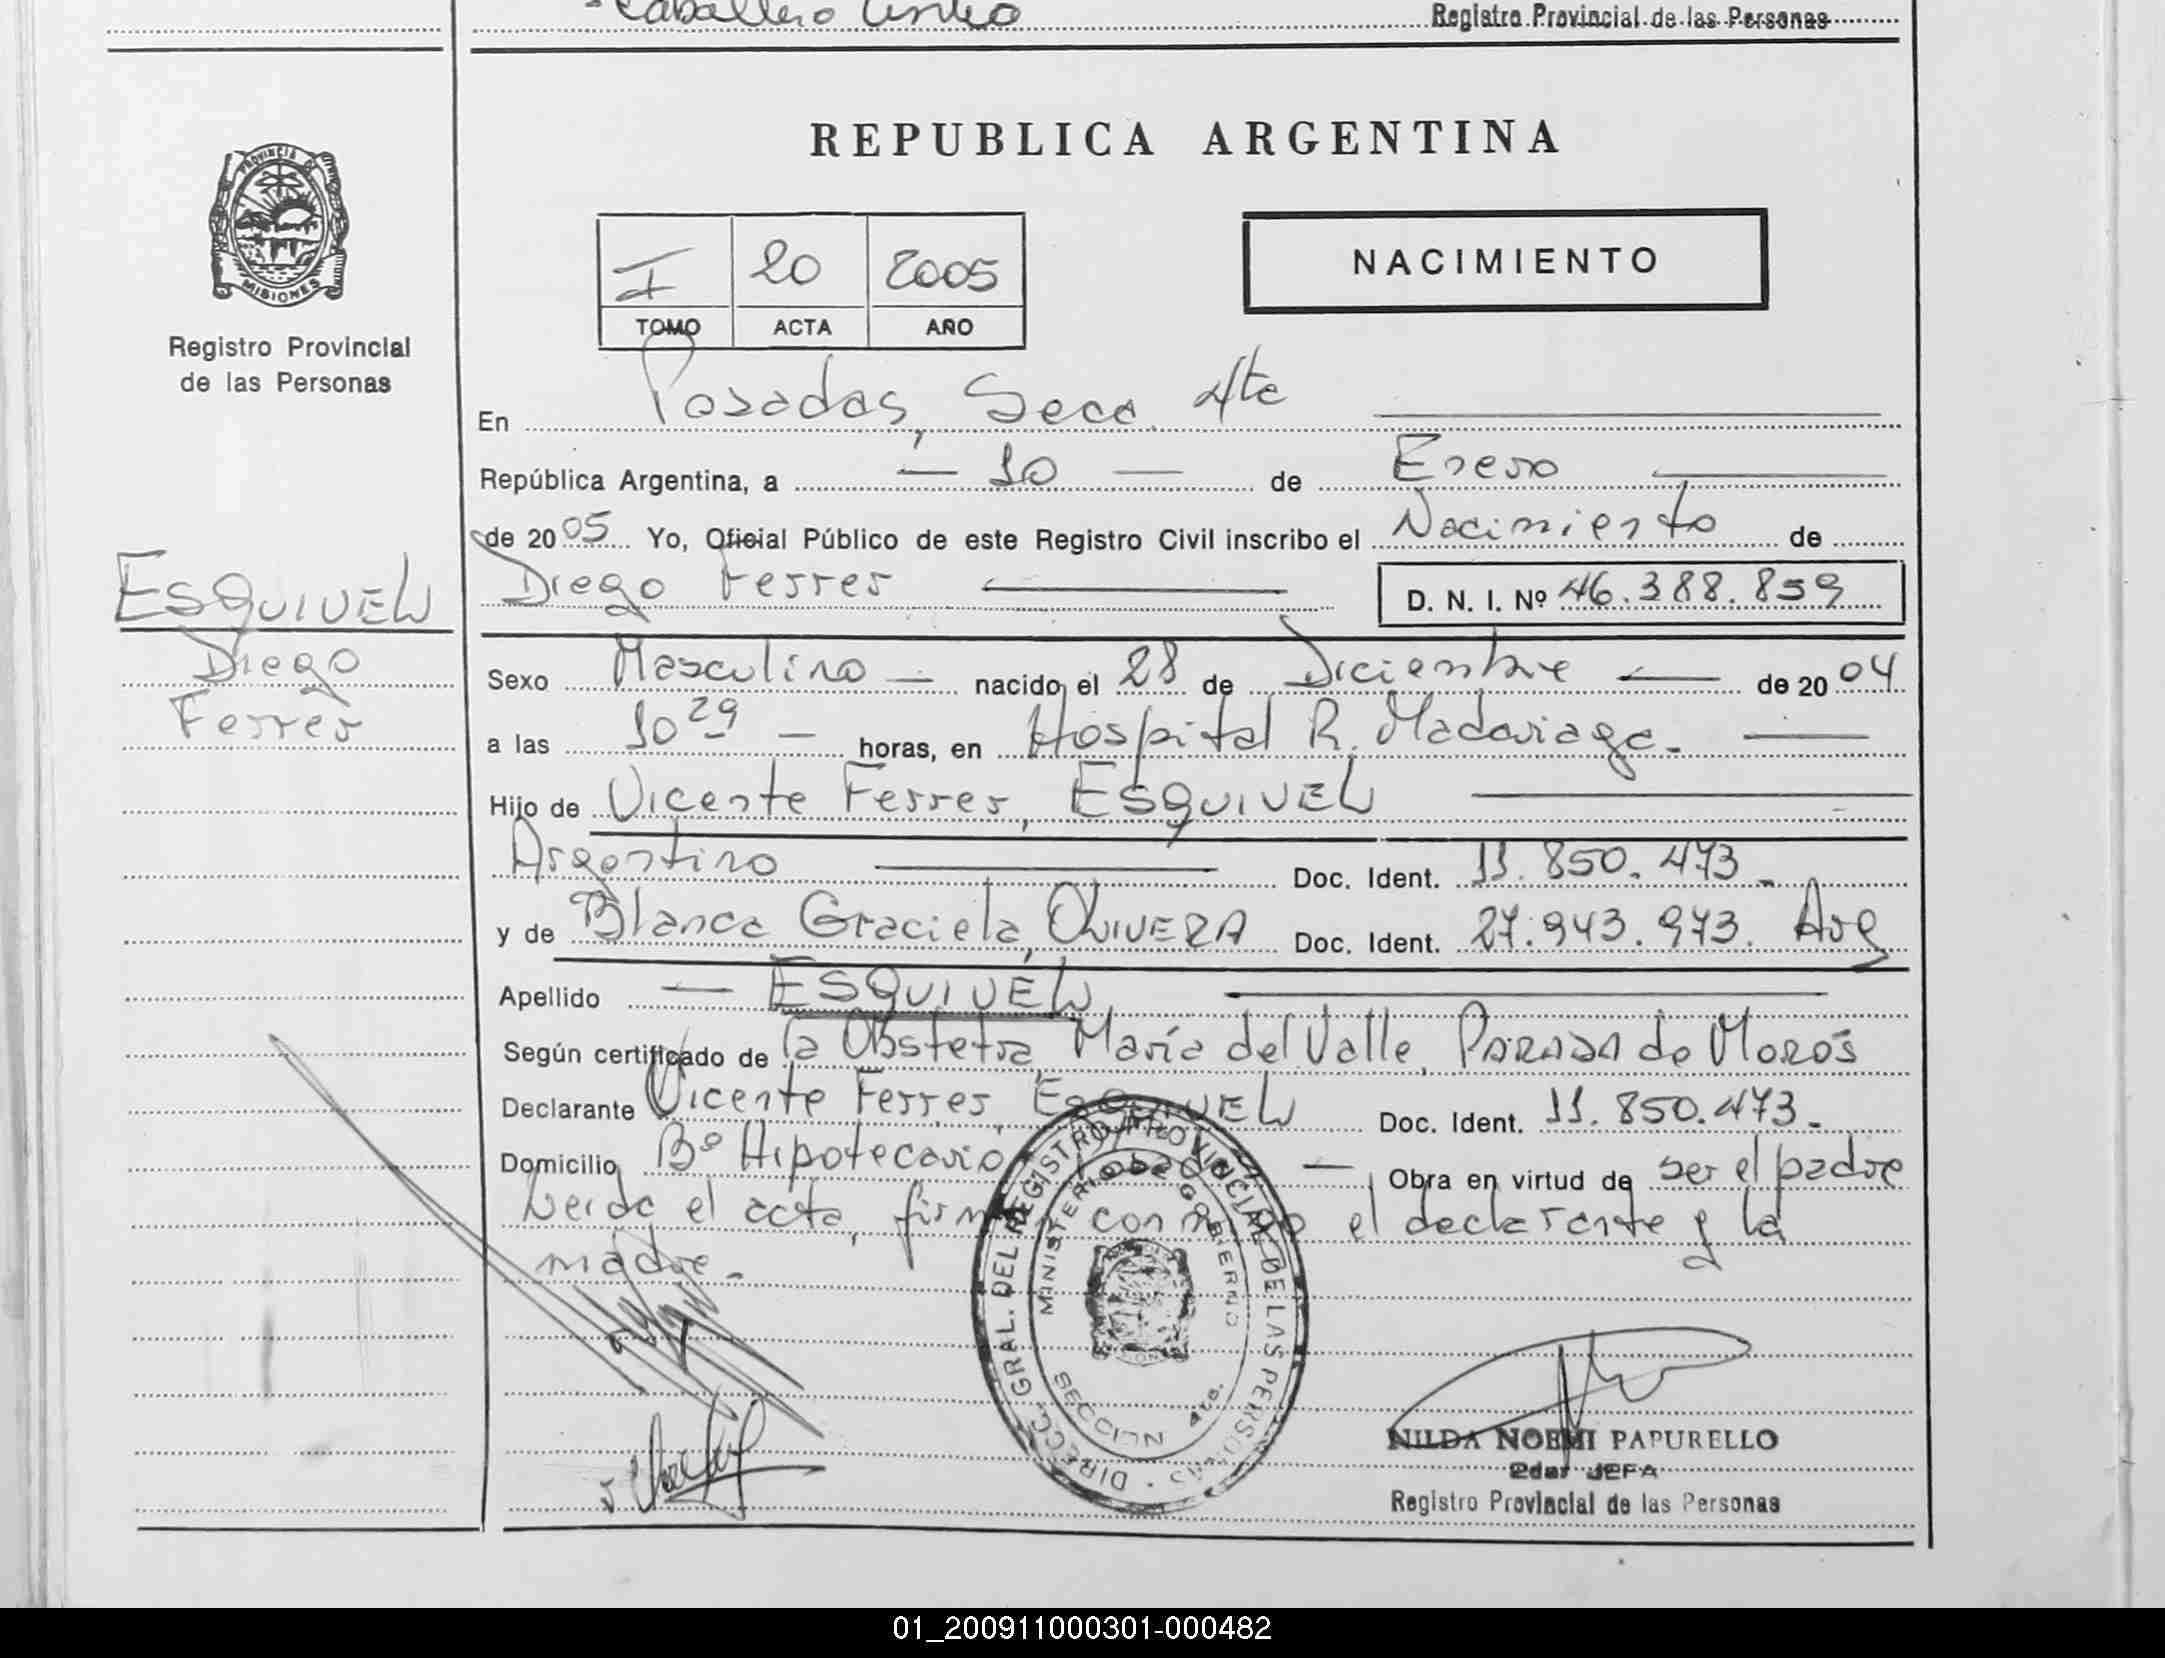 Caballero
Registro Provincial de las Personas
REPUBLICA ARGENTINA
PROVINCIA DE
MISIONES
Registro Provincial
de las Personas
I 20 2005
TOMO ACTA AÑO
NACIMIENTO
En Posadas, Secc. 4ta
República Argentina, a - 10 - de Enero
de 2005 Yo, Oficial Público de este Registro Civil inscribo el Nacimiento de
Diego Ferrer D. N. I. Nº 46.388.859
ESQUIVEL
Diego
Ferrer
Sexo Masculino - nacido el 28 de Diciembre - de 2004
a las 10 29 - horas, en Hospital R. Madariaga.
Hijo de Vicente Ferrer, ESQUIVEL
Argentino Doc. Ident. 11.850.473.
y de Blanca Graciela, OLIVERA Doc. Ident. 27.943.973. Arg
Apellido - ESQUIVEL
Según certificado de la Obstetra, María del Valle, PARADA de Moros
Declarante Vicente Ferrer, ESQUIVEL Doc. Ident. 11.850.473.
Domicilio Bº Hipotecario, Posadas - Obra en virtud de ser el padre
Leida el acta, firman conmigo el declarante y la
madre.
DIRECC. GRAL. DEL REGISTRO PROVINCIAL DE LAS PERSONAS
MINISTERIO DE GOBIERNO
SECCION 4ta.
NILDA NOEMI PAPURELLO
2da. JEFA
Registro Provincial de las Personas
01_200911000301-000482